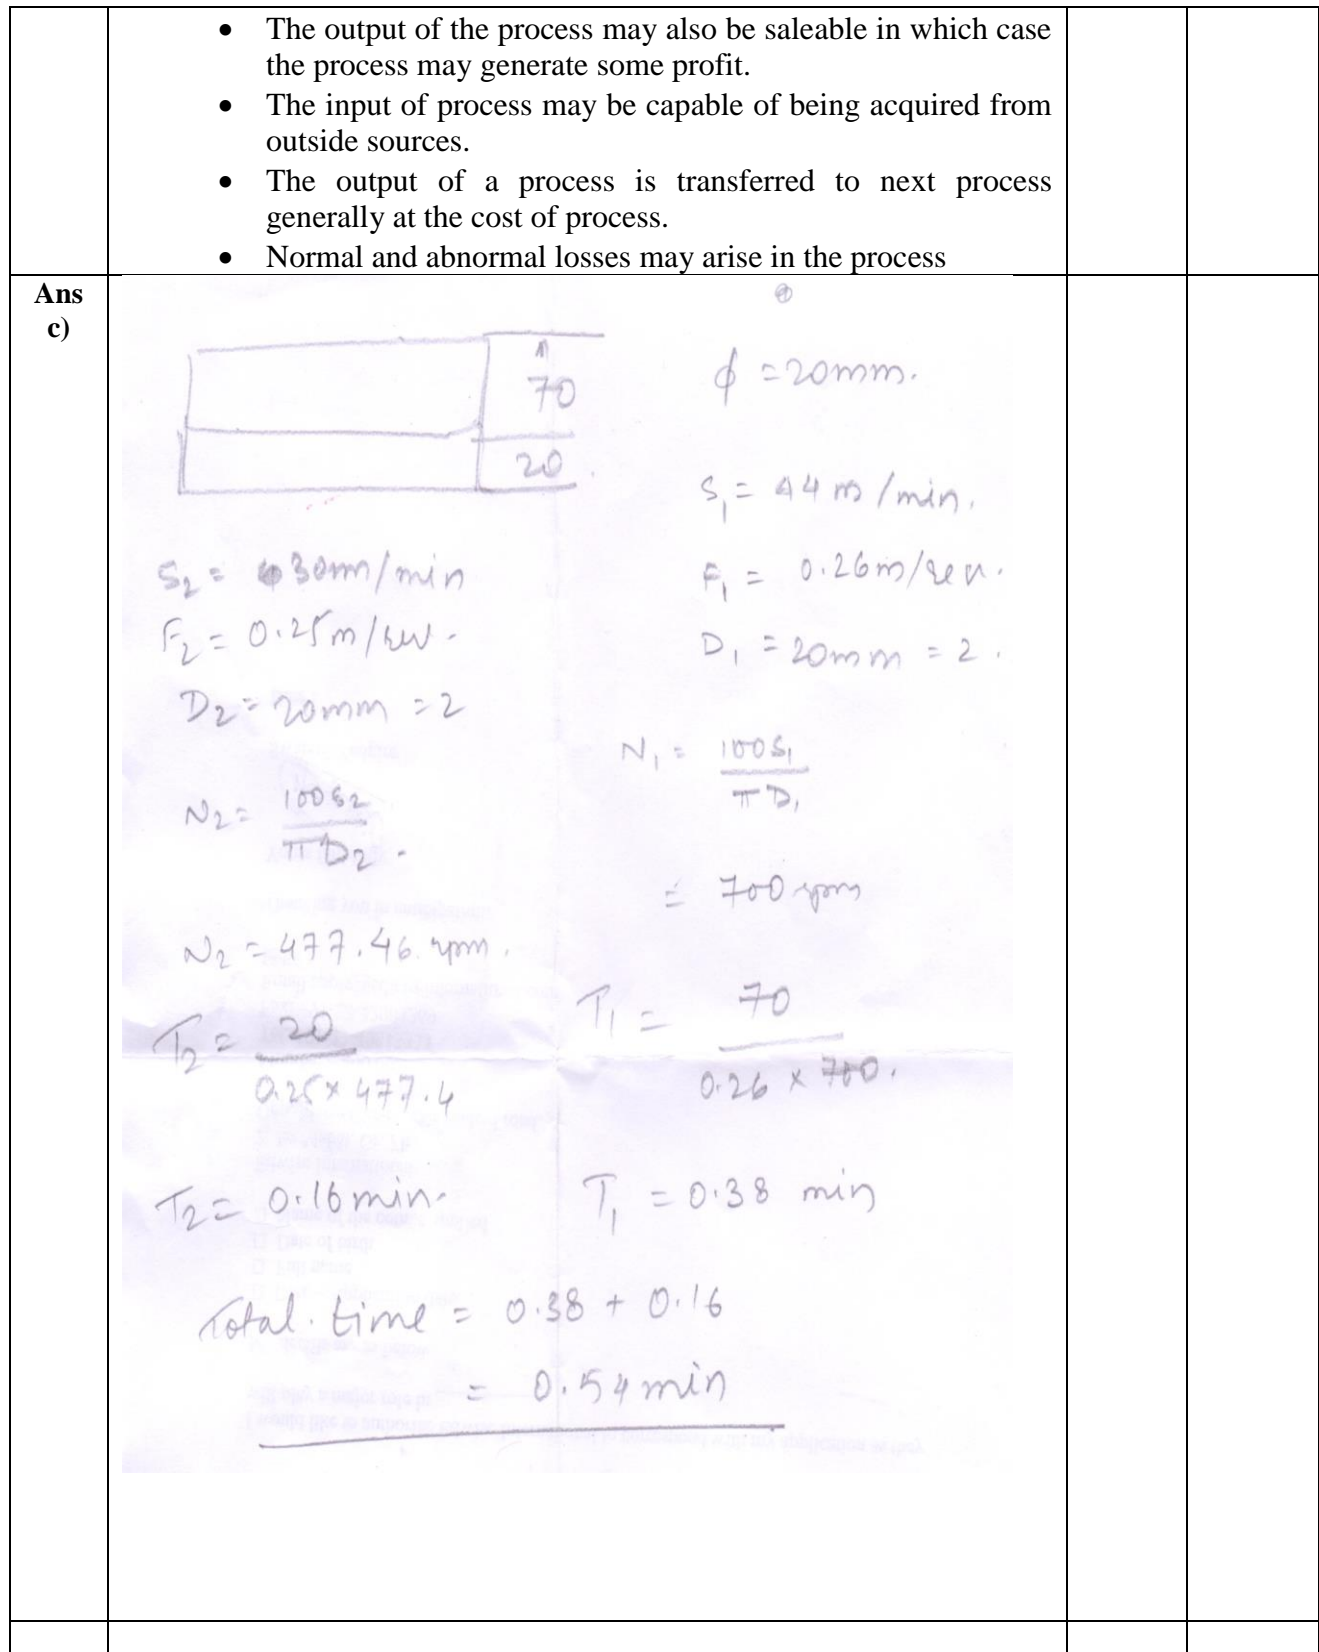 • The output of the process may also be saleable in which case
the process may generate some profit.
• The input of process may be capable of being acquired from
outside sources.
• The output of a process is transferred to next process
generally at the cost of process.
• Normal and abnormal losses may arise in the process
Ans
c)
70
20
ϕ = 20mm.
S₁ = 44 m/min.
S₂ = 30m/min
F₁ = 0.26m/rev.
F₂ = 0.25m/rev.
D₁ = 20mm = 2.
D₂ = 20mm = 2
N₁ = 100S₁ / πD₁
N₂ = 100S₂ / πD₂.
= 700 rpm
N₂ = 477.46. rpm.
T₁ = 70 / 0.26 x 700.
T₂ = 20 / 0.25x 477.4
T₂ = 0.16min. T₁ = 0.38 min
Total. time = 0.38 + 0.16
= 0.54 min